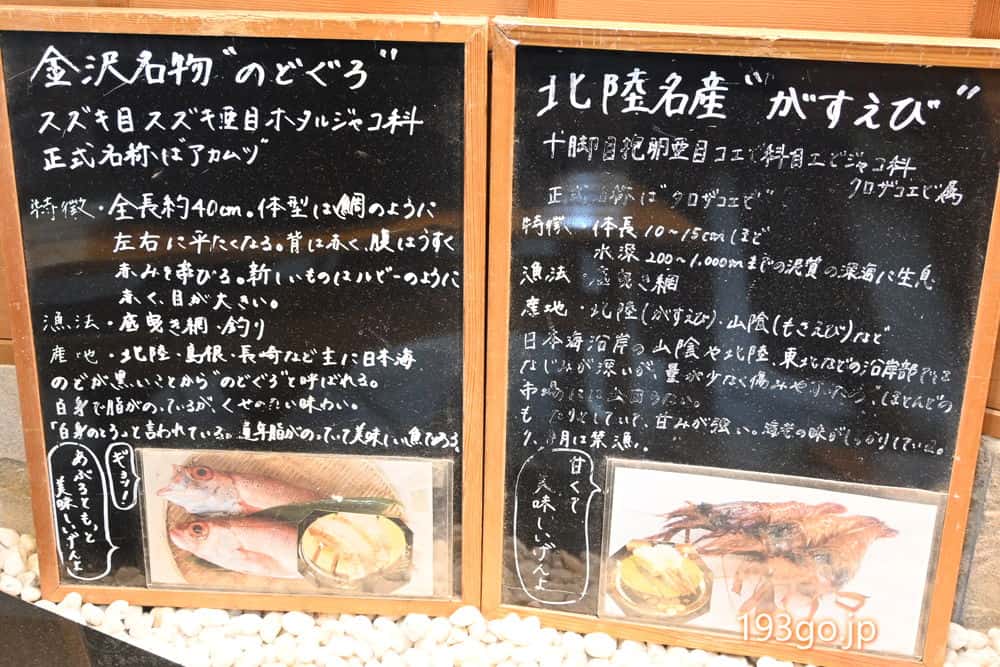 金沢名物"のどぐろ"
スズキ目スズキ亜目ホタルジャコ科
正式名称はアカムツ
特徴・全長約40cm。体型は鯛のように
左右に平たくなる。背は赤く、腹はうすく
赤みを帯びる。新しいものはルビーのように
赤く、目が大きい。
漁法・底曳き網・釣り
産地・北陸・島根・長崎など主に日本海
のどが黒いことから"のどぐろ"と呼ばれる。
白身で脂がのっているが、くせのない味わい。
「白身のとろ」と言われている。通年脂がのっていて美味しい魚である
ギョッ!
あぶるともっと
美味しいげんよ
北陸名産"がすえび"
十脚目抱卵亜目コエビ科目エビジャコ科
クロザコエビ属
正式名称は クロザコエビ
特徴・体長10~15cmほど
水深200~1,000mまでの泥質の深海に生息
漁法 底曳き網
産地・北陸(がすえび)・山陰(もさえび)など
日本海沿岸の山陰や北陸、東北などの沿岸部では
なじみが深いが、量が少なく傷みやすいため、ほとんどの
市場には出回らない。
もったりとしていて、甘みが強い。海老の味がしっかりしている。
月は禁漁。
甘くて
美味しいげんよ
193go.jp